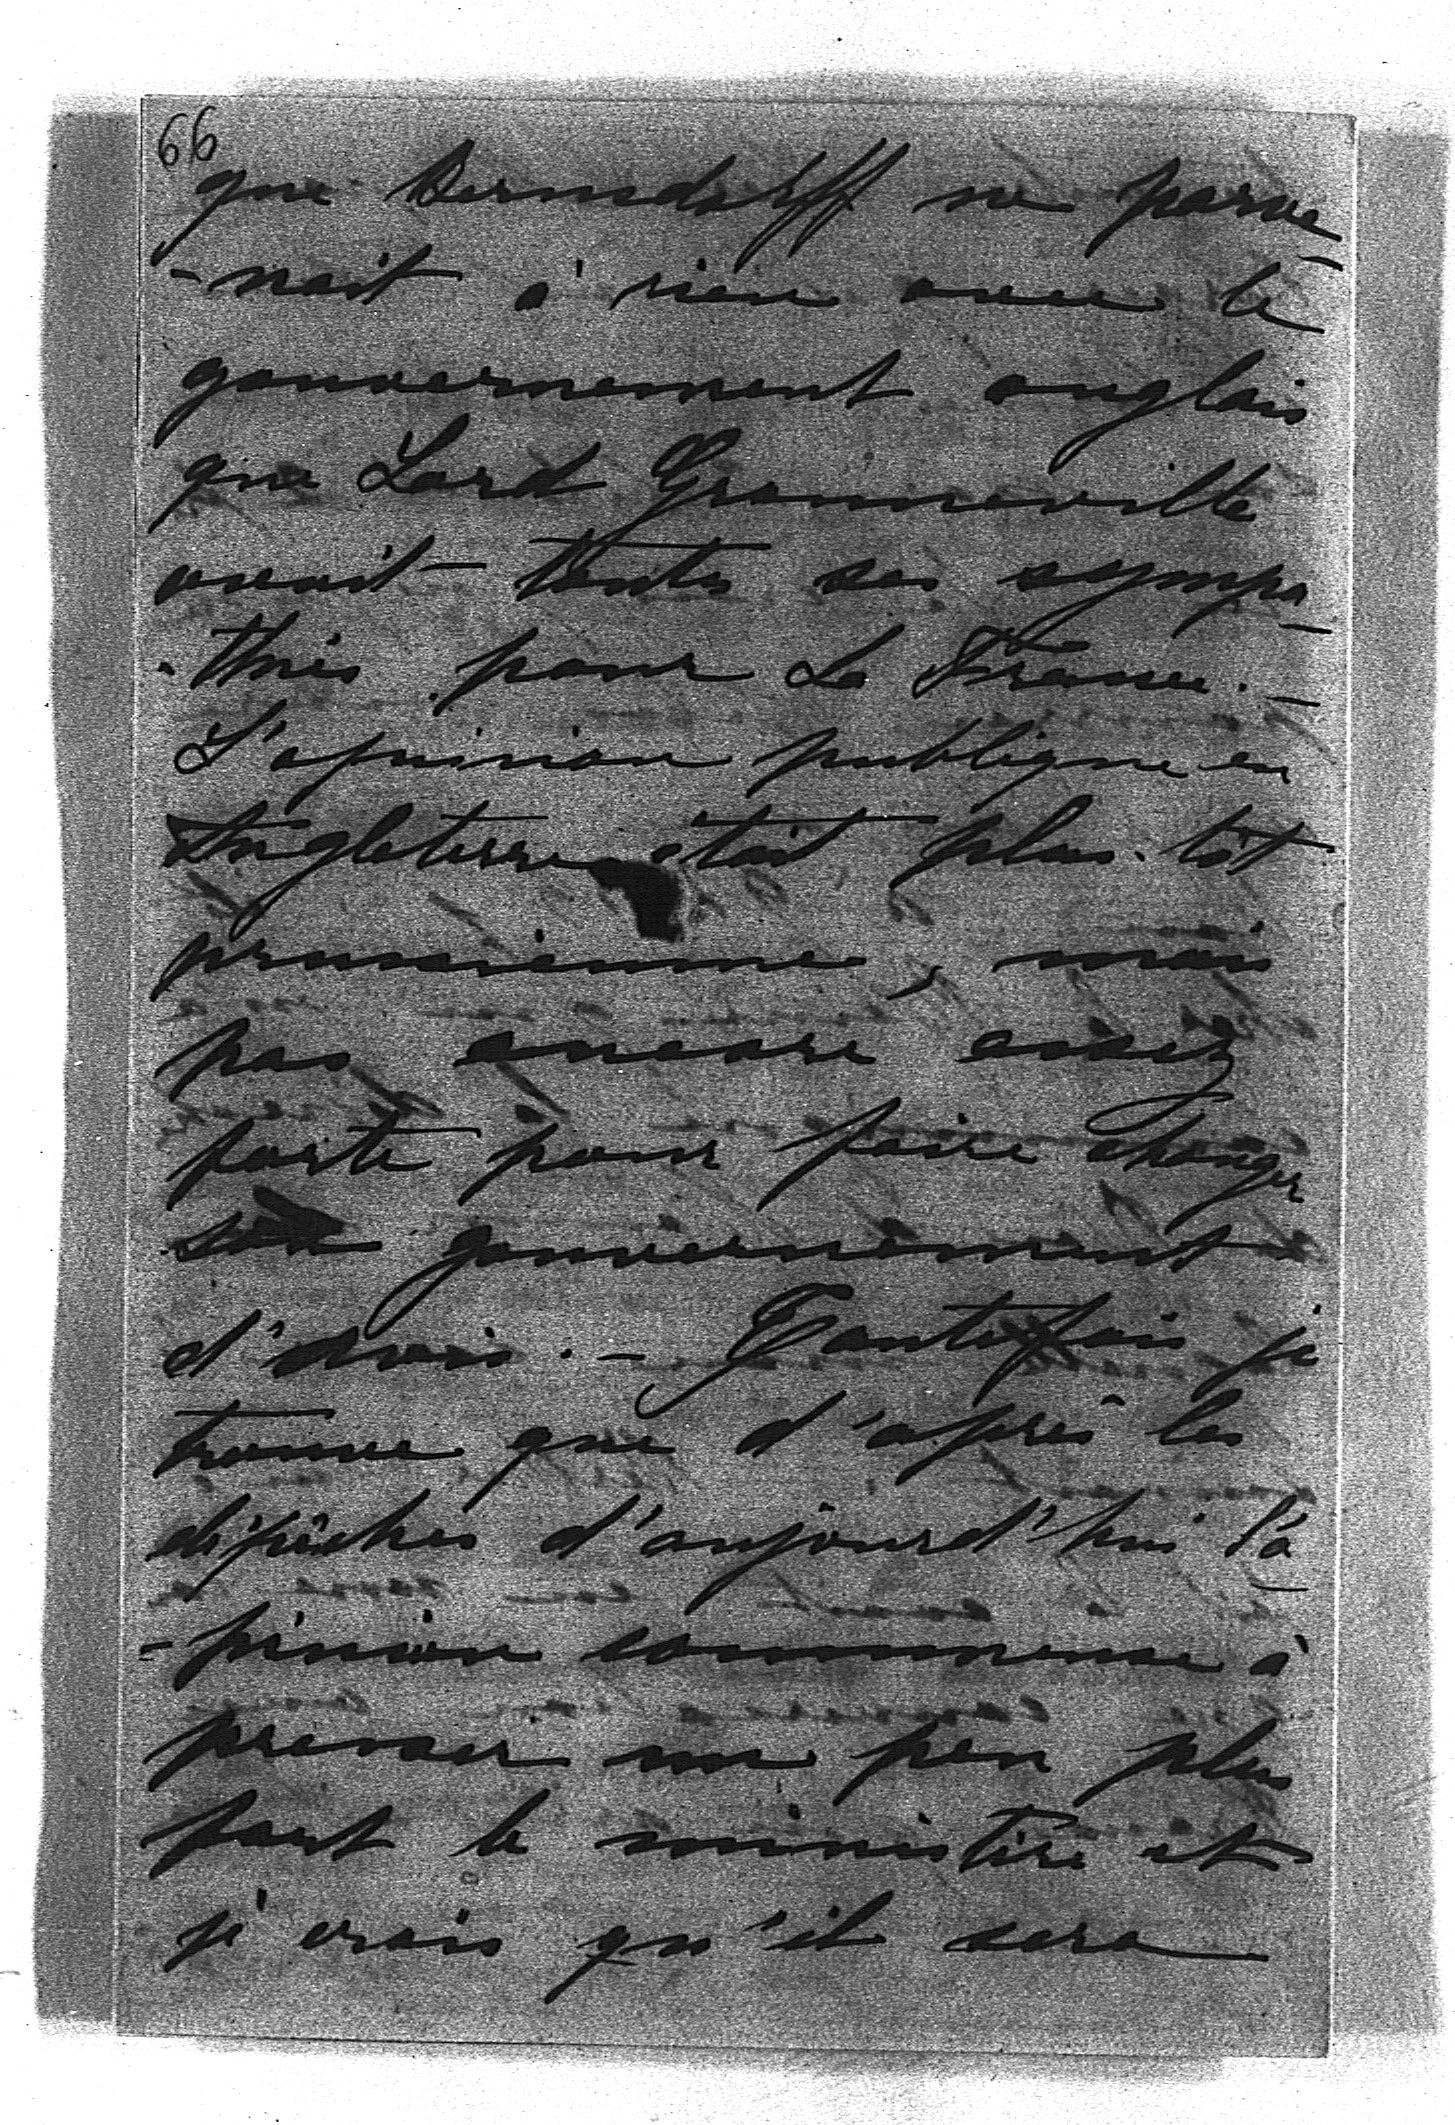 66
que Bernsdorff ne parve-
-nait à rien avec le
gouvernement anglais
que Lord Granneville
avait toute ses sympa-
-thies pour la France. -
L'opinion publique en
Angleterre était plus-tôt
prussienne, mais
pas encore assez
forte pour faire changer
son gouvernement
d'avis. - Toutefois je
trouve que d'après les
dépêches d'aujourd'hui l'o-
-pinion commence à
presser un peu plus
fort le ministère et
je crois qu'il sera